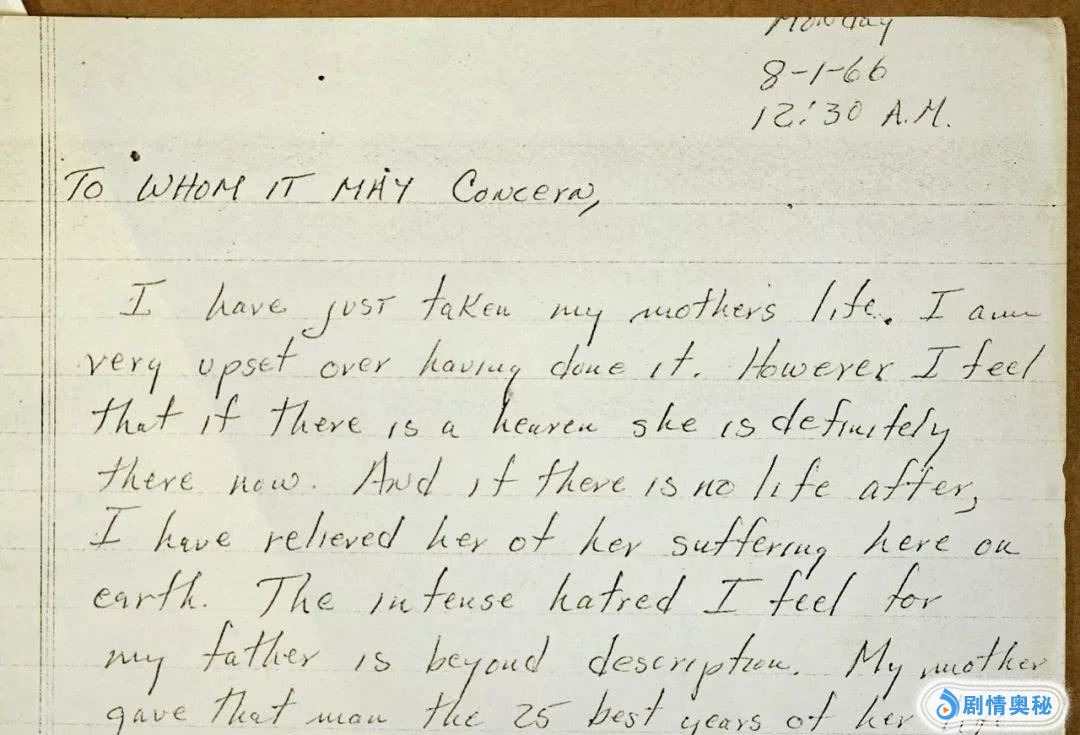 Monday
8-1-66
12:30 A.M.
To Whom It May Concern,
I have just taken my mother's life. I am
very upset over having done it. However I feel
that if there is a heaven she is definitely
there now. And if there is no life after,
I have relieved her of her suffering here on
earth. The intense hatred I feel for
my father is beyond description. My mother
gave that man the 25 best years of her life
剧情奥秘